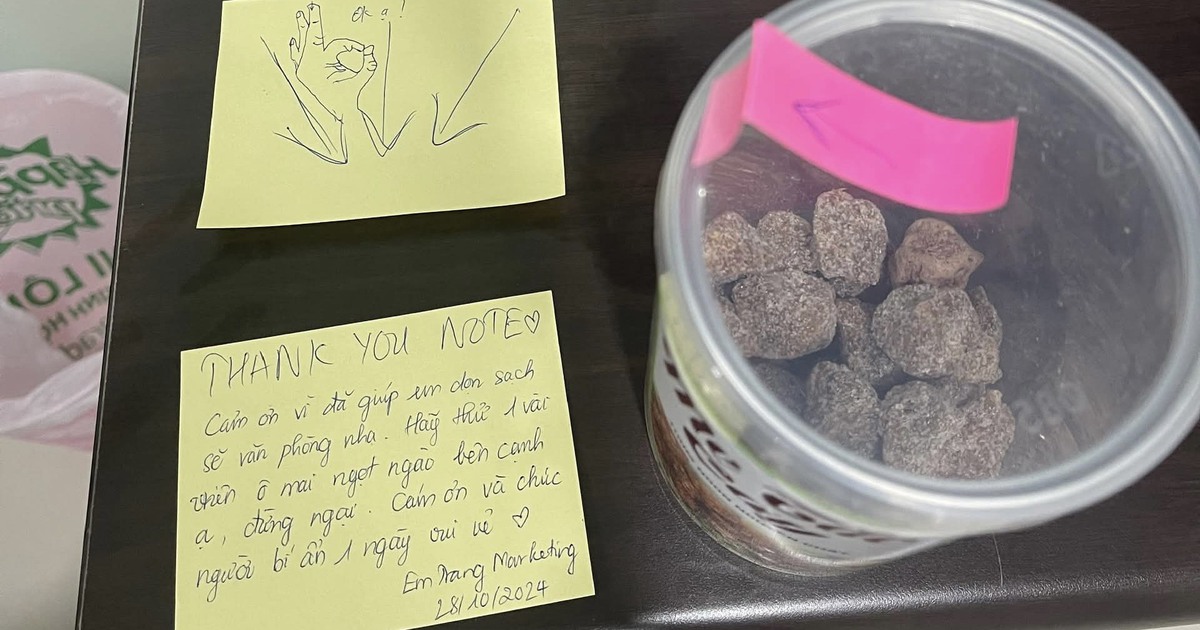 Ok ạ!
THANK YOU NOTE♡
Cảm ơn vì đã giúp em dọn sạch
sẽ văn phòng nha. Hãy thử 1 vài
viên ô mai ngọt ngào bên cạnh
ạ, đừng ngại. Cảm ơn và chúc
người bí ẩn 1 ngày vui vẻ ♡
Em Trang Marketing
28/10/2024